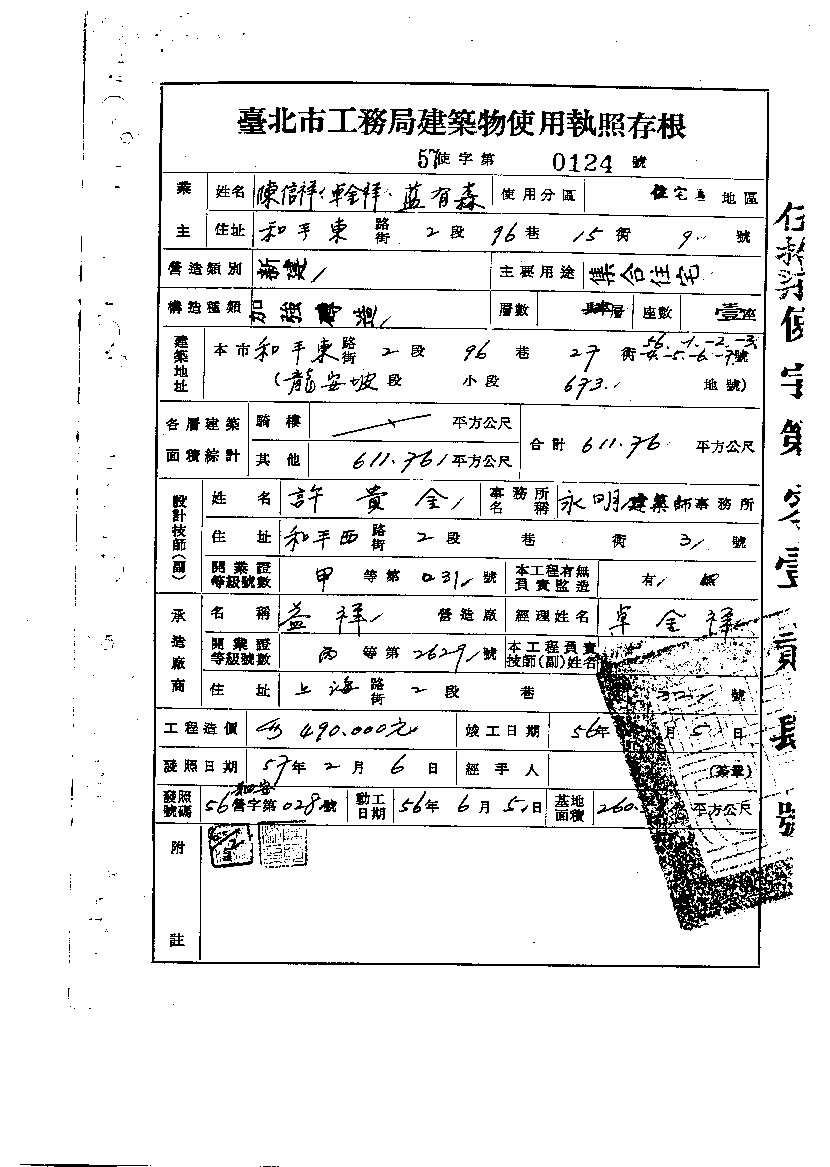 臺北市工務局建築物使用執照存根
57使字第 0124 號
業主 姓名 陳信祥、卓金祥、藍有森 使用分區 住宅區 地區
住址 和平東路街 2段 96巷 15衖 9 號
營造類別 新建 主要用途 集合住宅
構造種類 加強磚造 層數 肆層 座數 壹座
建築地址 本市和平東路街 2段 96巷 27衖 56.-1.-2.-3.-4.-5.-6.-7.號
(龍安坡段 小段 673 地號)
各層建築面積綜計 騎樓 平方公尺 合計 611.76 平方公尺
其他 611.76 平方公尺
設計技師(副) 姓名 許貴全 事務所名稱 永明建築師事務所
住址 和平西路街 2段 巷 衖 3 號
開業證等級號數 甲等第 031 號 本工程有無員實監造 有 無
承造廠商 名稱 益祥 營造廠 經理姓名 卓金祥
開業證等級號數 丙等第 2629 號 本工程員實技師(副)姓名
住址 上海路街 2段 巷 號
工程造價 490.000元 竣工日期 56年 月 5 日
發照日期 57年 2月 6日 經手人 (簽章)
發照號碼 56營字第028號 動工日期 56年 6月 5日 基地面積 260. 平方公尺
附註
伍拾柒使字第零壹貳肆號